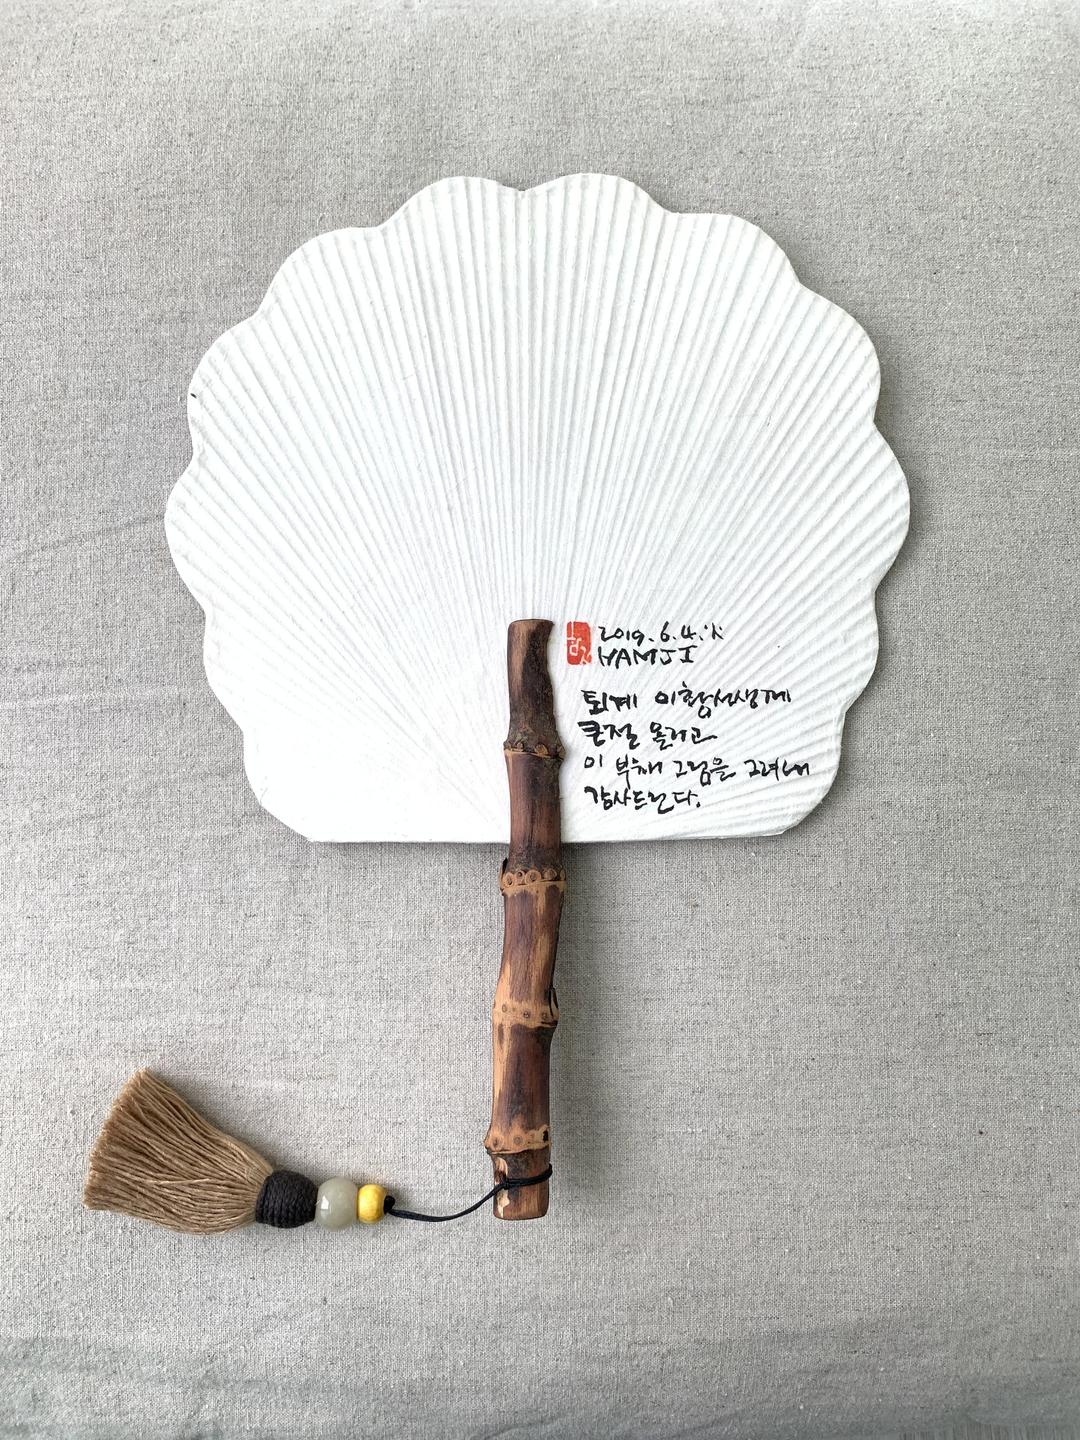 2019.6.4.火
HAMJI
퇴계 이황선생께
큰절 올리고
이 부채 그림을 그려내
감사드린다.